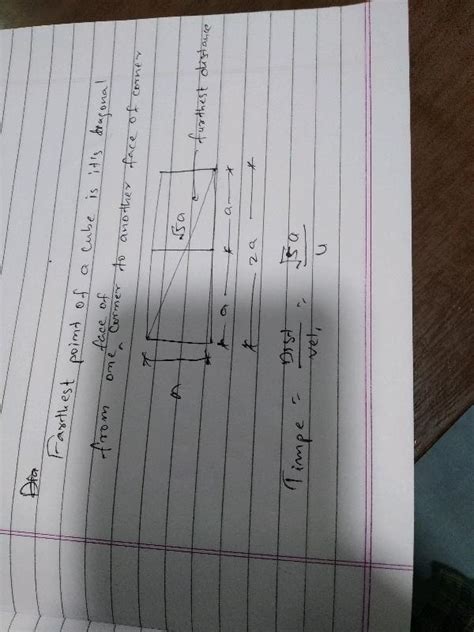 Ans
Farthest point of a cube is it's diagonal
from one face of corner to another face of corner
√5a
furthest distance
a
a
a
2a
Timpe = Dist / vel. = √5a / u